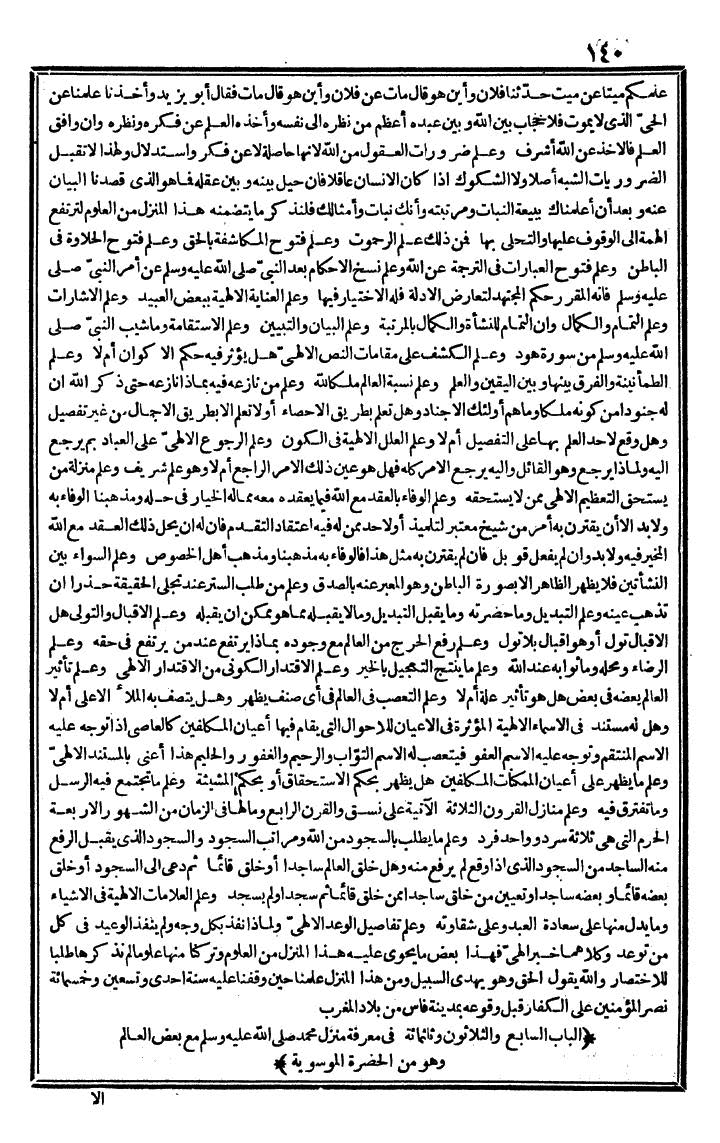 ١٤٠
علمكم ميتا عن ميت حدّثنا فلان وأين هو قال مات عن فلان وأين هو قال مات فقال أبو يزيد وأخذنا علمنا عن
الحيّ الذى لا يموت فلا حجاب بين الله وبين عبده أعظم من نظره الى نفسه وأخذه العلم عن فكره ونظره وان وافق
العلم فالاخذ عن الله أشرف وعلم ضرورات العقول من الله لانها حاصلة لا عن فكر واستدلال ولهذا لا تقبل
الضروريات الشبه أصلا ولا الشكوك اذا كان الانسان عاقلا فان حيل بينه وبين عقله فما هو الذى قصدنا البيان
عنه وبعد أن أعلمناك ببيعة النبات ومرتبته وأنك نبات وأمثالك فلنذكر ما يتضمنه هذا المنزل من العلوم لترتفع
الهمة الى الوقوف عليها والتحلى بها فمن ذلك علم الرحموت وعلم فتوح المكاشفة بالحق وعلم فتوح الحلاوة فى
الباطن وعلم فتوح العبارات فى الترجمة عن الله وعلم نسخ الاحكام بعد النبيّ صلى الله عليه وسلم عن أمر النبيّ صلى
عليه وسلم فانه المقرر حكم المجتهد لتعارض الادلة فله الاختيار فيها وعلم العناية الالهية ببعض العبيد وعلم الاشارات
وعلم التمام والكمال وان التمام للنشأة والكمال بالمرتبة وعلم البيان والتبيين وعلم الاستقامة وما شيب النبيّ صلى
الله عليه وسلم من سورة هود وعلم الكشف على مقامات النص الالهىّ هل يؤثر فيه حكم الاكوان أم لا وعلم
الطمأنينة والفرق بينها وبين اليقين والعلم وعلم نسبة العالم ملكا لله وعلم من نازعه فيه بماذا نازعه حتى ذكر الله ان
له جنودا من كونه ملكا وما هم أولئك الاجناد وهل تعلم بطريق الاحصاء أو لا تعلم الا بطريق الاجمال من غير تفصيل
وهل وقع لاحد العلم بها على التفصيل أم لا وعلم العلل الالهية فى الكون وعلم الرجوع الالهىّ على العباد بم يرجع
اليه ولماذا يرجع وهو القائل واليه يرجع الامر كله فهل هو عين ذلك الامر الراجع أم لا وهو علم شريف وعلم منزلة من
يستحق التعظيم الالهى ممن لا يستحقه وعلم الوفاء بالعقد مع الله فيما يعقده معه مما له الخيار فى حله ومذهبنا الوفاء به
ولا بد الا أن يقترن به أمر من شيخ معتبر لتلميذ أو لاحد ممن له فيه اعتقاد التقدم فان له ان يحل ذلك العقد مع الله
المخير فيه ولا بد وان لم يفعل قوبل فان لم يقترن به مثل هذا فالوفاء به مذهبنا ومذهب أهل الخصوص وعلم السواء بين
النشأتين فلا يظهر الظاهر الا بصورة الباطن وهو المعبر عنه بالصدق وعلم من طلب الستر عند تجلى الحقيقة حذرا ان
تذهب عينه وعلم التبديل وما حضرته وما يقبل التبديل وما لا يقبله مما هو ممكن ان يقبله وعلم الاقبال والتولى هل
الاقبال تول أو هو اقبال بلا تول وعلم رفع الحرج من العالم مع وجوده بماذا يرتفع عند من يرتفع فى حقه وعلم
الرضاء ومحله وما ثوابه عند الله وعلم ما ينتج التعجيل بالخير وعلم الاقتدار الكونى من الاقتدار الالهى وعلم تأثير
العالم بعضه فى بعض هل هو تأثير علة أم لا وعلم التعصب فى العالم فى أى صنف يظهر وهل يتصف به الملأ الاعلى أم لا
وهل له مستند فى الاسماء الالهية المؤثرة فى الاعيان للاحوال التى يقام فيها أعيان المكلفين كالعاصى اذا توجه عليه
الاسم المنتقم وتوجه عليه الاسم العفو فيتعصب له الاسم التوّاب والرحيم والغفور والحليم هذا أعنى بالمستند الالهىّ
وعلم ما يظهر على أعيان الممكنات المكلفين هل يظهر بحكم الاستحقاق أو بحكم المشيئة وعلم ما تجتمع فيه الرسل
وما تفترق فيه وعلم منازل القرون الثلاثة الآتية على نسق والقرن الرابع وما لها فى الزمان من الشهور الاربعة
الحرم التى هى ثلاثة سرد وواحد فرد وعلم ما يطلب بالسجود من الله ومراتب السجود والسجود الذى يقبل الرفع
منه الساجد من السجود الذى اذا وقع لم يرفع منه وهل خلق العالم ساجدا أو خلق قائما ثم دعى الى السجود أو خلق
بعضه قائما وبعضه ساجدا وتعيين من خلق ساجدا ممن خلق قائما ثم سجد او لم يسجد وعلم العلامات الالهية فى الاشياء
وما يدل منها على سعادة العبد وعلى شقاوته وعلم تفاصيل الوعد الالهىّ ولماذا نفذ بكل وجه ولم ينفذ الوعيد فى كل
من توعد وكلاهما خبر الهىّ فهذا بعض ما يحوى عليه هذا المنزل من العلوم وتركنا منها علوما لم نذكرها طلبا
للاختصار والله يقول الحق وهو يهدى السبيل ومن هذا المنزل علمنا حين وقفنا عليه سنة احدى وتسعين وخمسمائة
نصر المؤمنين على الكفار قبل وقوعه بمدينة فاس من بلاد المغرب
﴿الباب السابع والثلاثون وثلثمائة فى معرفة منزل محمد صلى الله عليه وسلم مع بعض العالم
وهو من الحضرة الموسوية﴾
الا